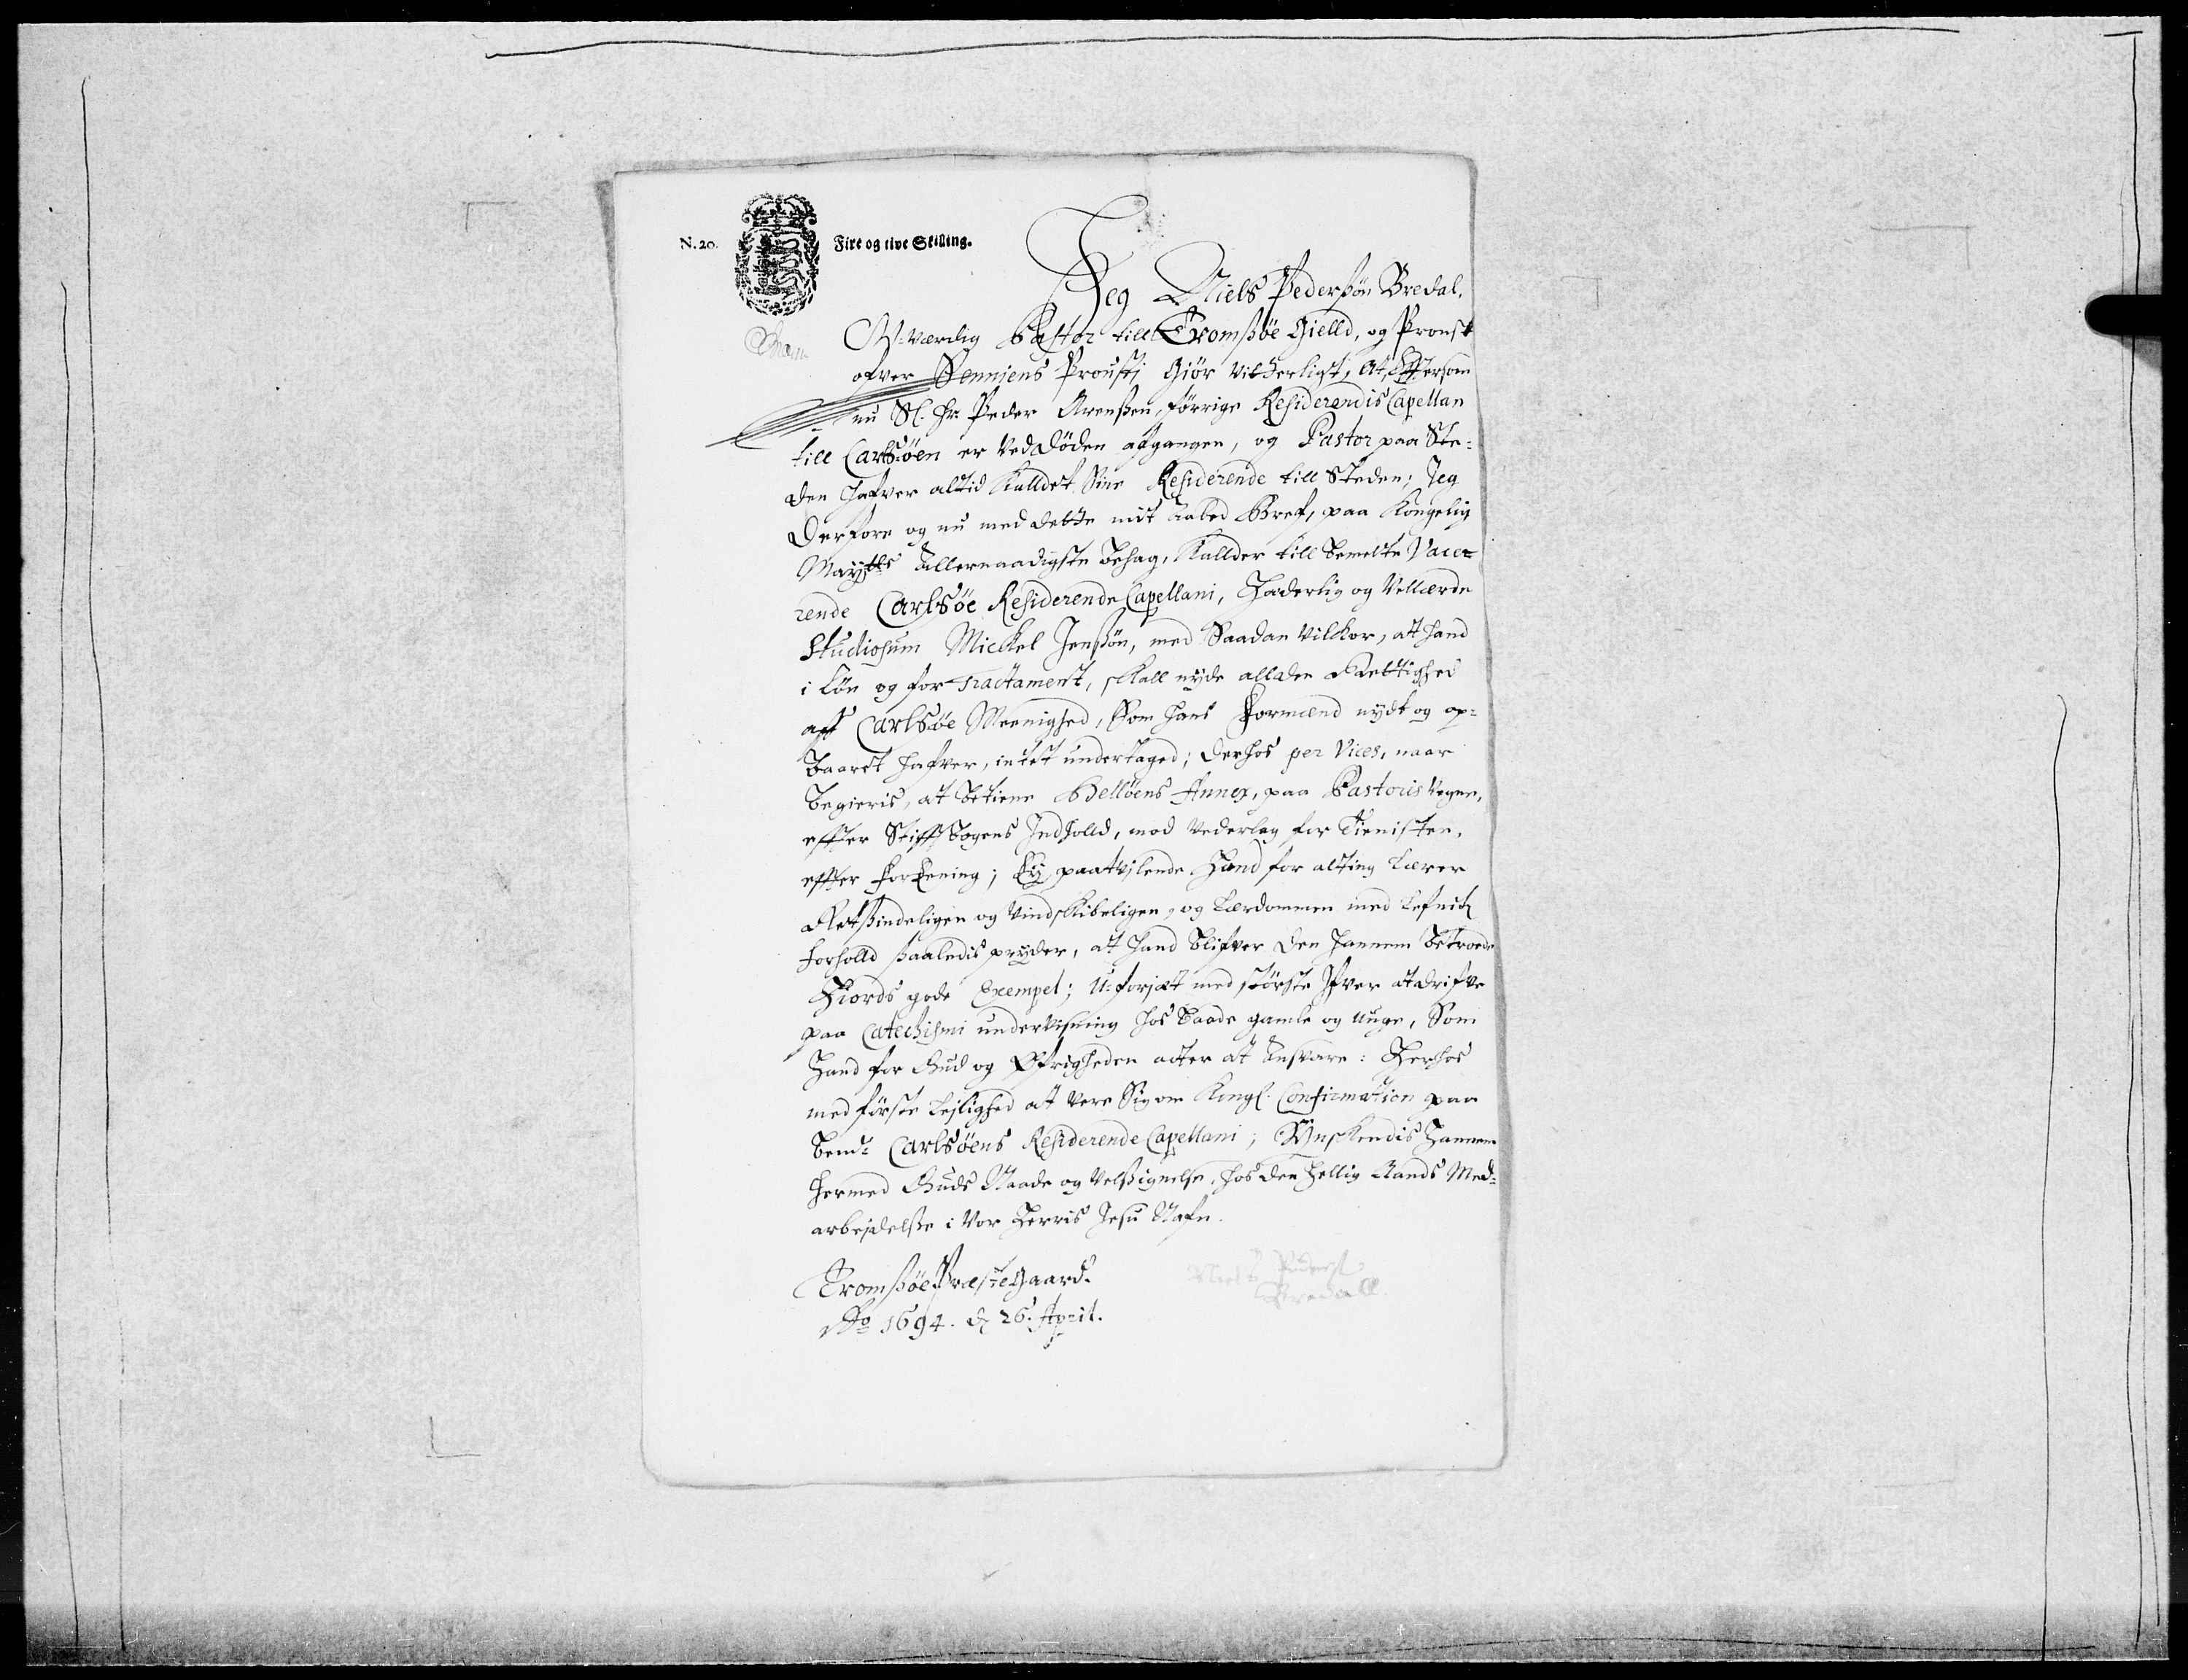 N. 20.
Fire og tive Skilling.
Jeg Niels Pederßön Bredal,
U-værdig Pastor till Tromßöe Gielld, og Proust
ofver Senniens Prousti Giör Vitterligt, At, Eftersom
nu Sl. Hr Peder Arenßen, förrige Residerendis Capellan
till Carlsöen er Ved Döden afgangen, og Pastor paa Ste-
den Hafver altid Kalldet Sine Residerende till Steden; Jeg
Derfore og nu med dette mit Aabed Bref, paa Kongelig
Maytts Allernaadigste Behag, Kallder till bemelte Vace-
rende Carlsöe Residerende Capellani, Hæderlig og Vellærde
Studiosum Mickel Jenßön, med Saadan Vilckor, at Hand
i Lön og for Tractament, skall nyde all den Rettighed
aff Carlsöe Meenighed, Som Hans Formænd nydt og op-
baaret Hafver, intet undertaged; Derhos per Vices, naar
begieris, at betiene Hellöens Annex, paa Pastoris Vegne,
effter Stifftbogens Indholld, mod Vederlag for Tienisten,
effter ForEening; Ey paatvilende Hand for alting Lærer
Retsindeligen og Vindskibeligen, og Lærdommen med Lefnitz
Forholld saaledis pryder, at Hand blifver Den Hannem betroede
Hiords gode Exempel; U-forsæt med störste Ifver at drifve
paa Catechismi undervisning Hos baade gamle og unge, Som
Hand for Gud og Öfrigheden acter at Ansvare: Herhos
med förste Leylighed at Vere Sig om Kongl. Confirmation paa
bemte Carlsöens Residerende Capellani; Ynskendis Hannem
Hermed Guds Naade og Velsignelse, Hos den Hellig Aands Med-
arbejdelße i Vor Herris Jesu Nafn.
Tromßöe PræsteGaard.
Ao 1694. d 26. April.
Niels Pederß
Bredall